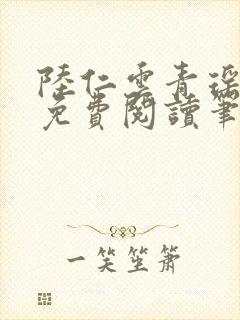 陸仁雲青瑶
免費閱讀筆
一笑笙簫